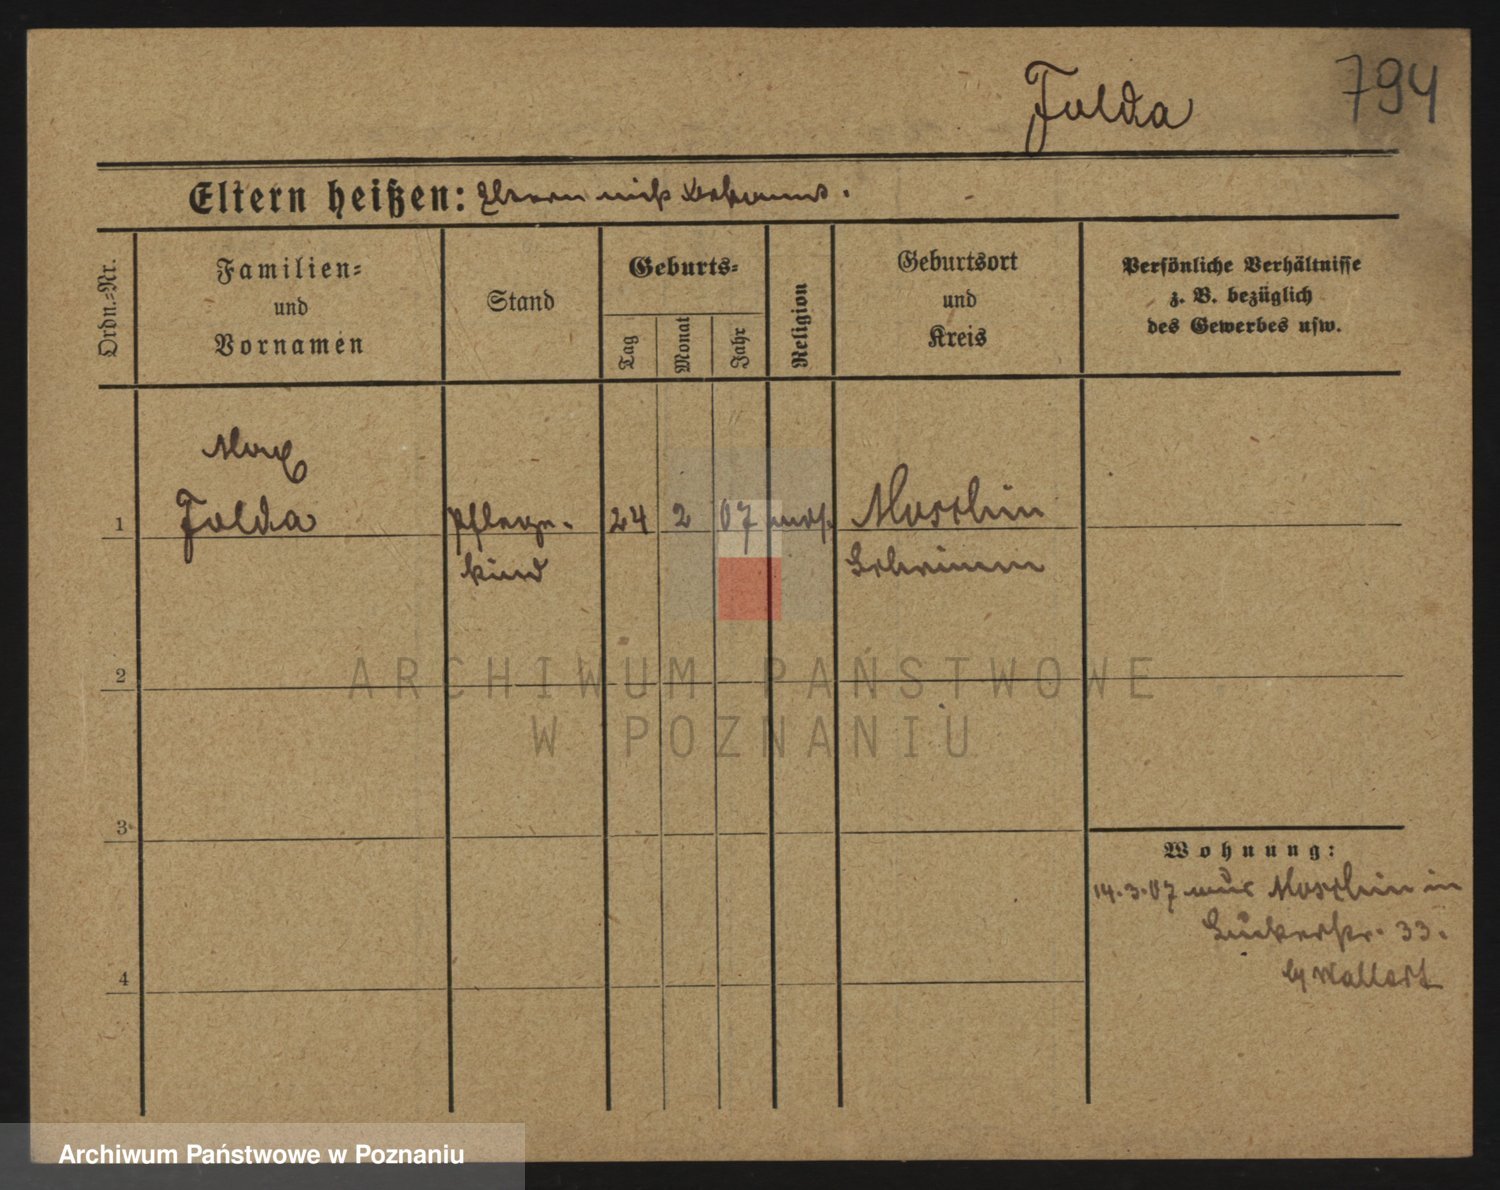 794
Folda
Eltern heißen: Eltern nicht bekannt.
Ordn.-Nr.
Familien-
und
Vornamen
Stand
Geburts-
Tag
Monat
Jahr
Religion
Geburtsort
und
Kreis
Persönliche Verhältnisse
z. B. bezüglich
des Gewerbes usw.
Max
1 Folda Pflege- 24 2 07 Moschin
kind Schrimm
2
3
4
Wohnung:
14.3.07 aus Moschin in
33.
ARCHIWUM PAŃSTWOWE
W POZNANIU
Archiwum Państwowe w Poznaniu